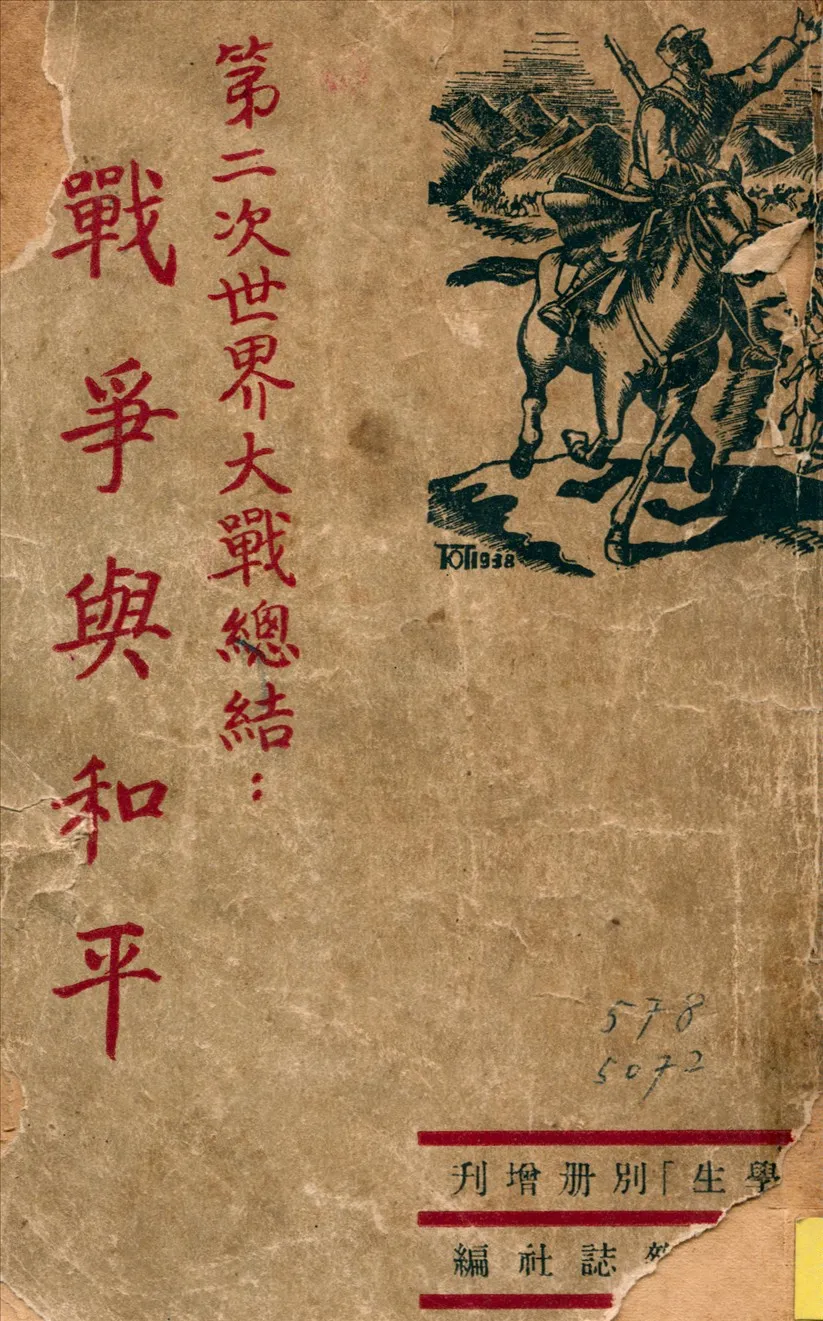 第二次世界大戰總結：
戰爭與和平
1938
578
5072
學生「別册增刊
誌社編